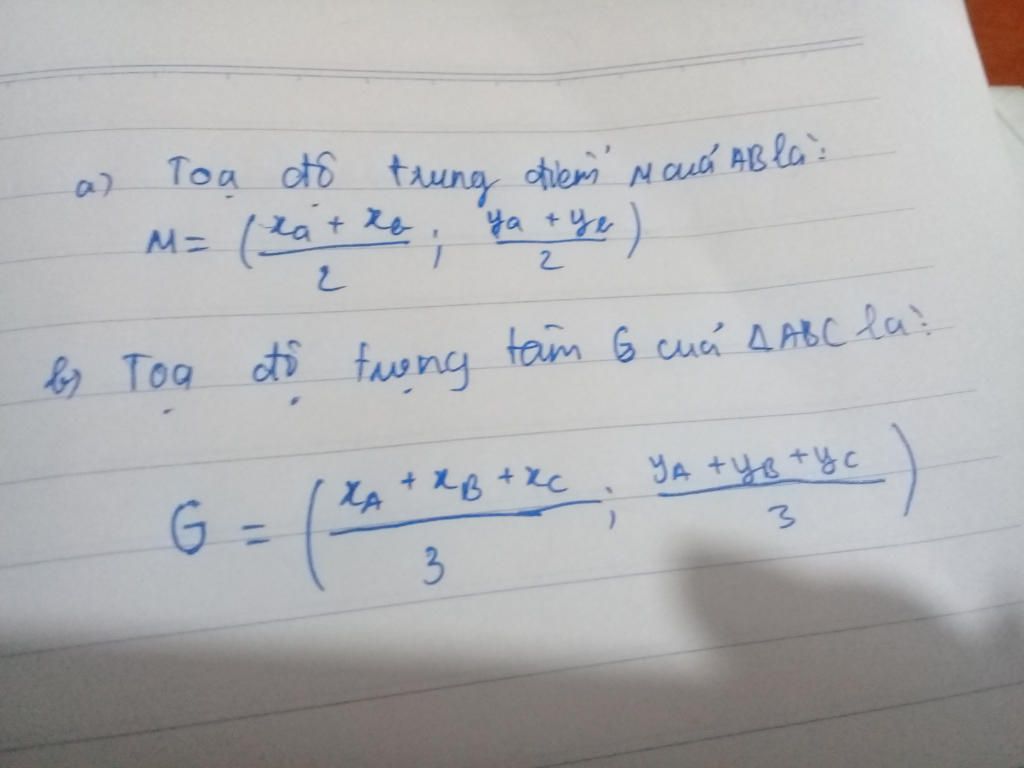 a) Toạ độ trung điểm M của AB là:
M = (xₐ + x_B / 2 ; yₐ + y_B / 2)
b) Toạ độ trọng tâm G của ΔABC là:
G = (x_A + x_B + x_C / 3 ; y_A + y_B + y_C / 3)